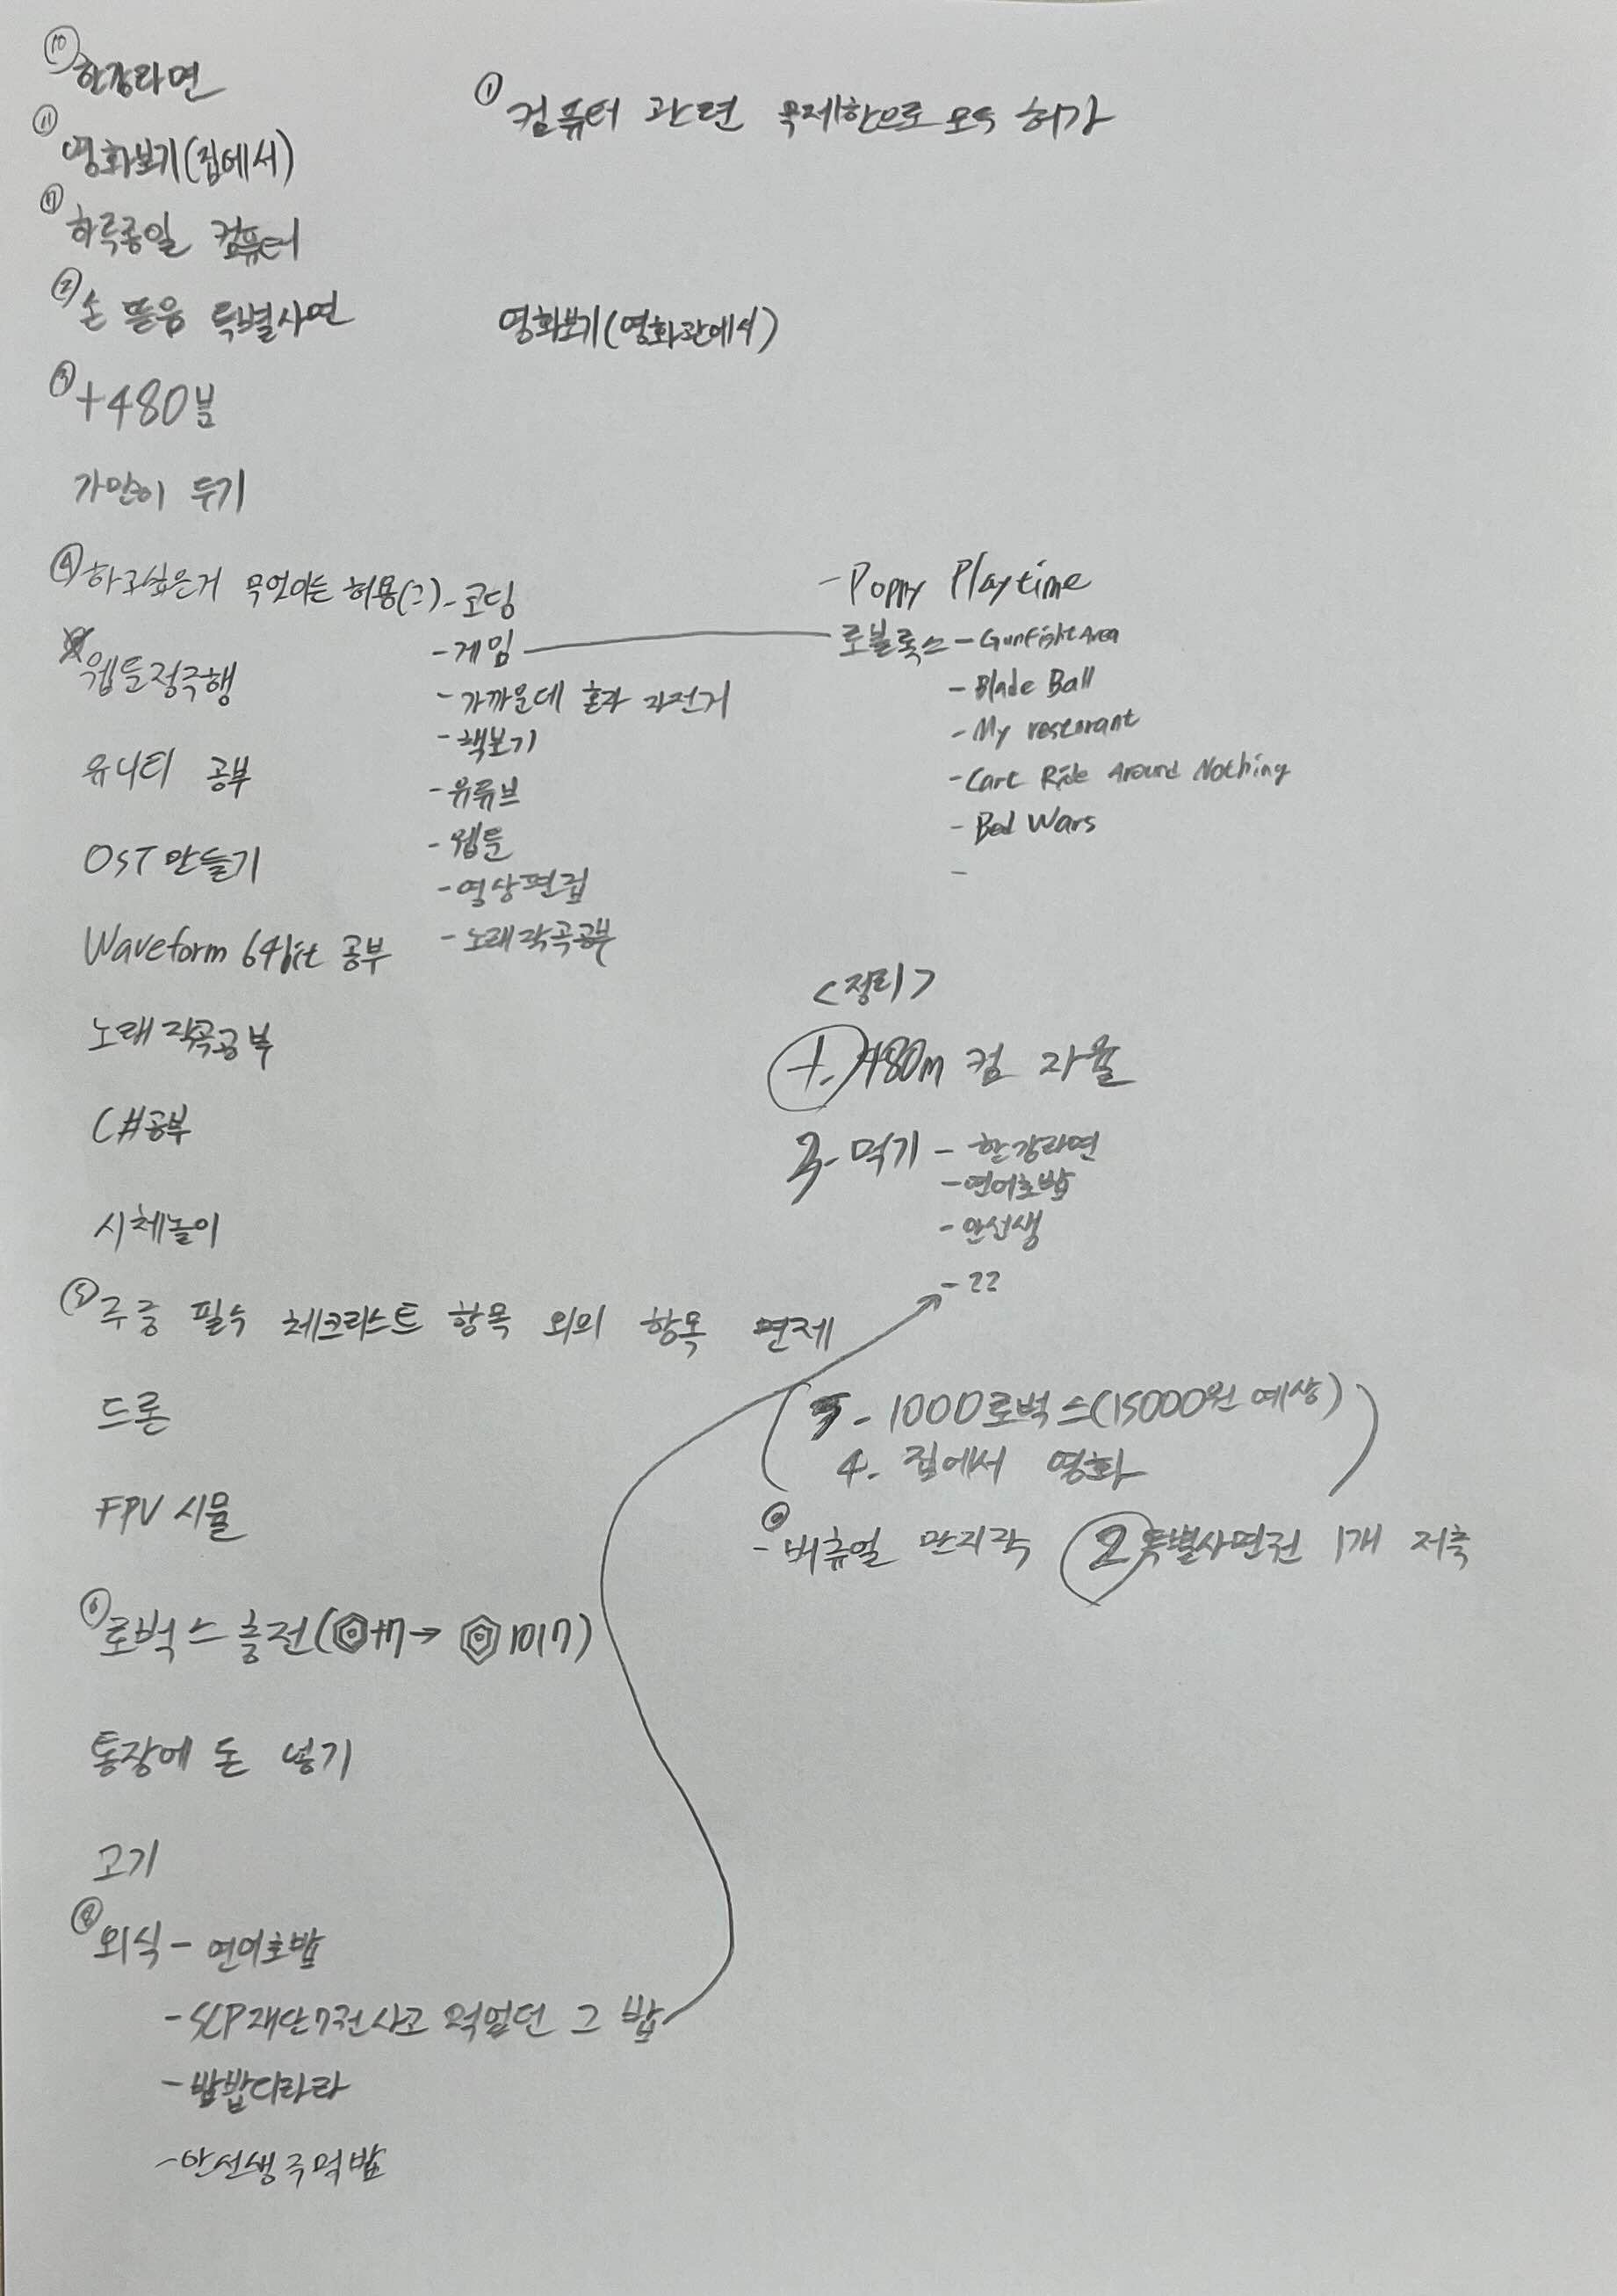 ⑩ 한강라면
① 컴퓨터 관련 무제한으로 모두 허가
⑪ 영화보기(집에서)
⑦ 하루종일 컴퓨터
② 손 뜯음 특별사면
영화보기(영화관에서)
③ +480분
가만히 두기
④ 하고싶은거 무엇이든 허용(:) - 코딩
- 게임
- 가까운데 혼자 자전거
- 책보기
- 유튜브
- 웹툰
- 영상편집
- 노래작곡공부
- Poppy Playtime
로블록스 - GunFight Area
- Blade Ball
- My restorant
- Cart Ride Around Nothing
- Bed Wars
-
웹툰정주행
유니티 공부
OST 만들기
Waveform 64bit 공부
노래작곡공부
C#공부
시체놀이
<정리>
1. 480m 컴 자율
2. 먹기 - 한강라면
- 연어초밥
- 안선생
- ??
⑤ 주중 필수 체크리스트 항목 외의 항목 면제
드론
FPV 시뮬
(3. 1000로벅스(15000원 예상)
4. 집에서 영화)
- 버츄얼 만지작
2 특별사면권 1개 저축
⑥ 로벅스 충전(+17→ 1017)
통장에 돈 넣기
고기
⑧ 외식 - 연어초밥
- SCP재단7권사고 먹었던 그 밥
- 밥밥디라라
- 안선생주먹밥